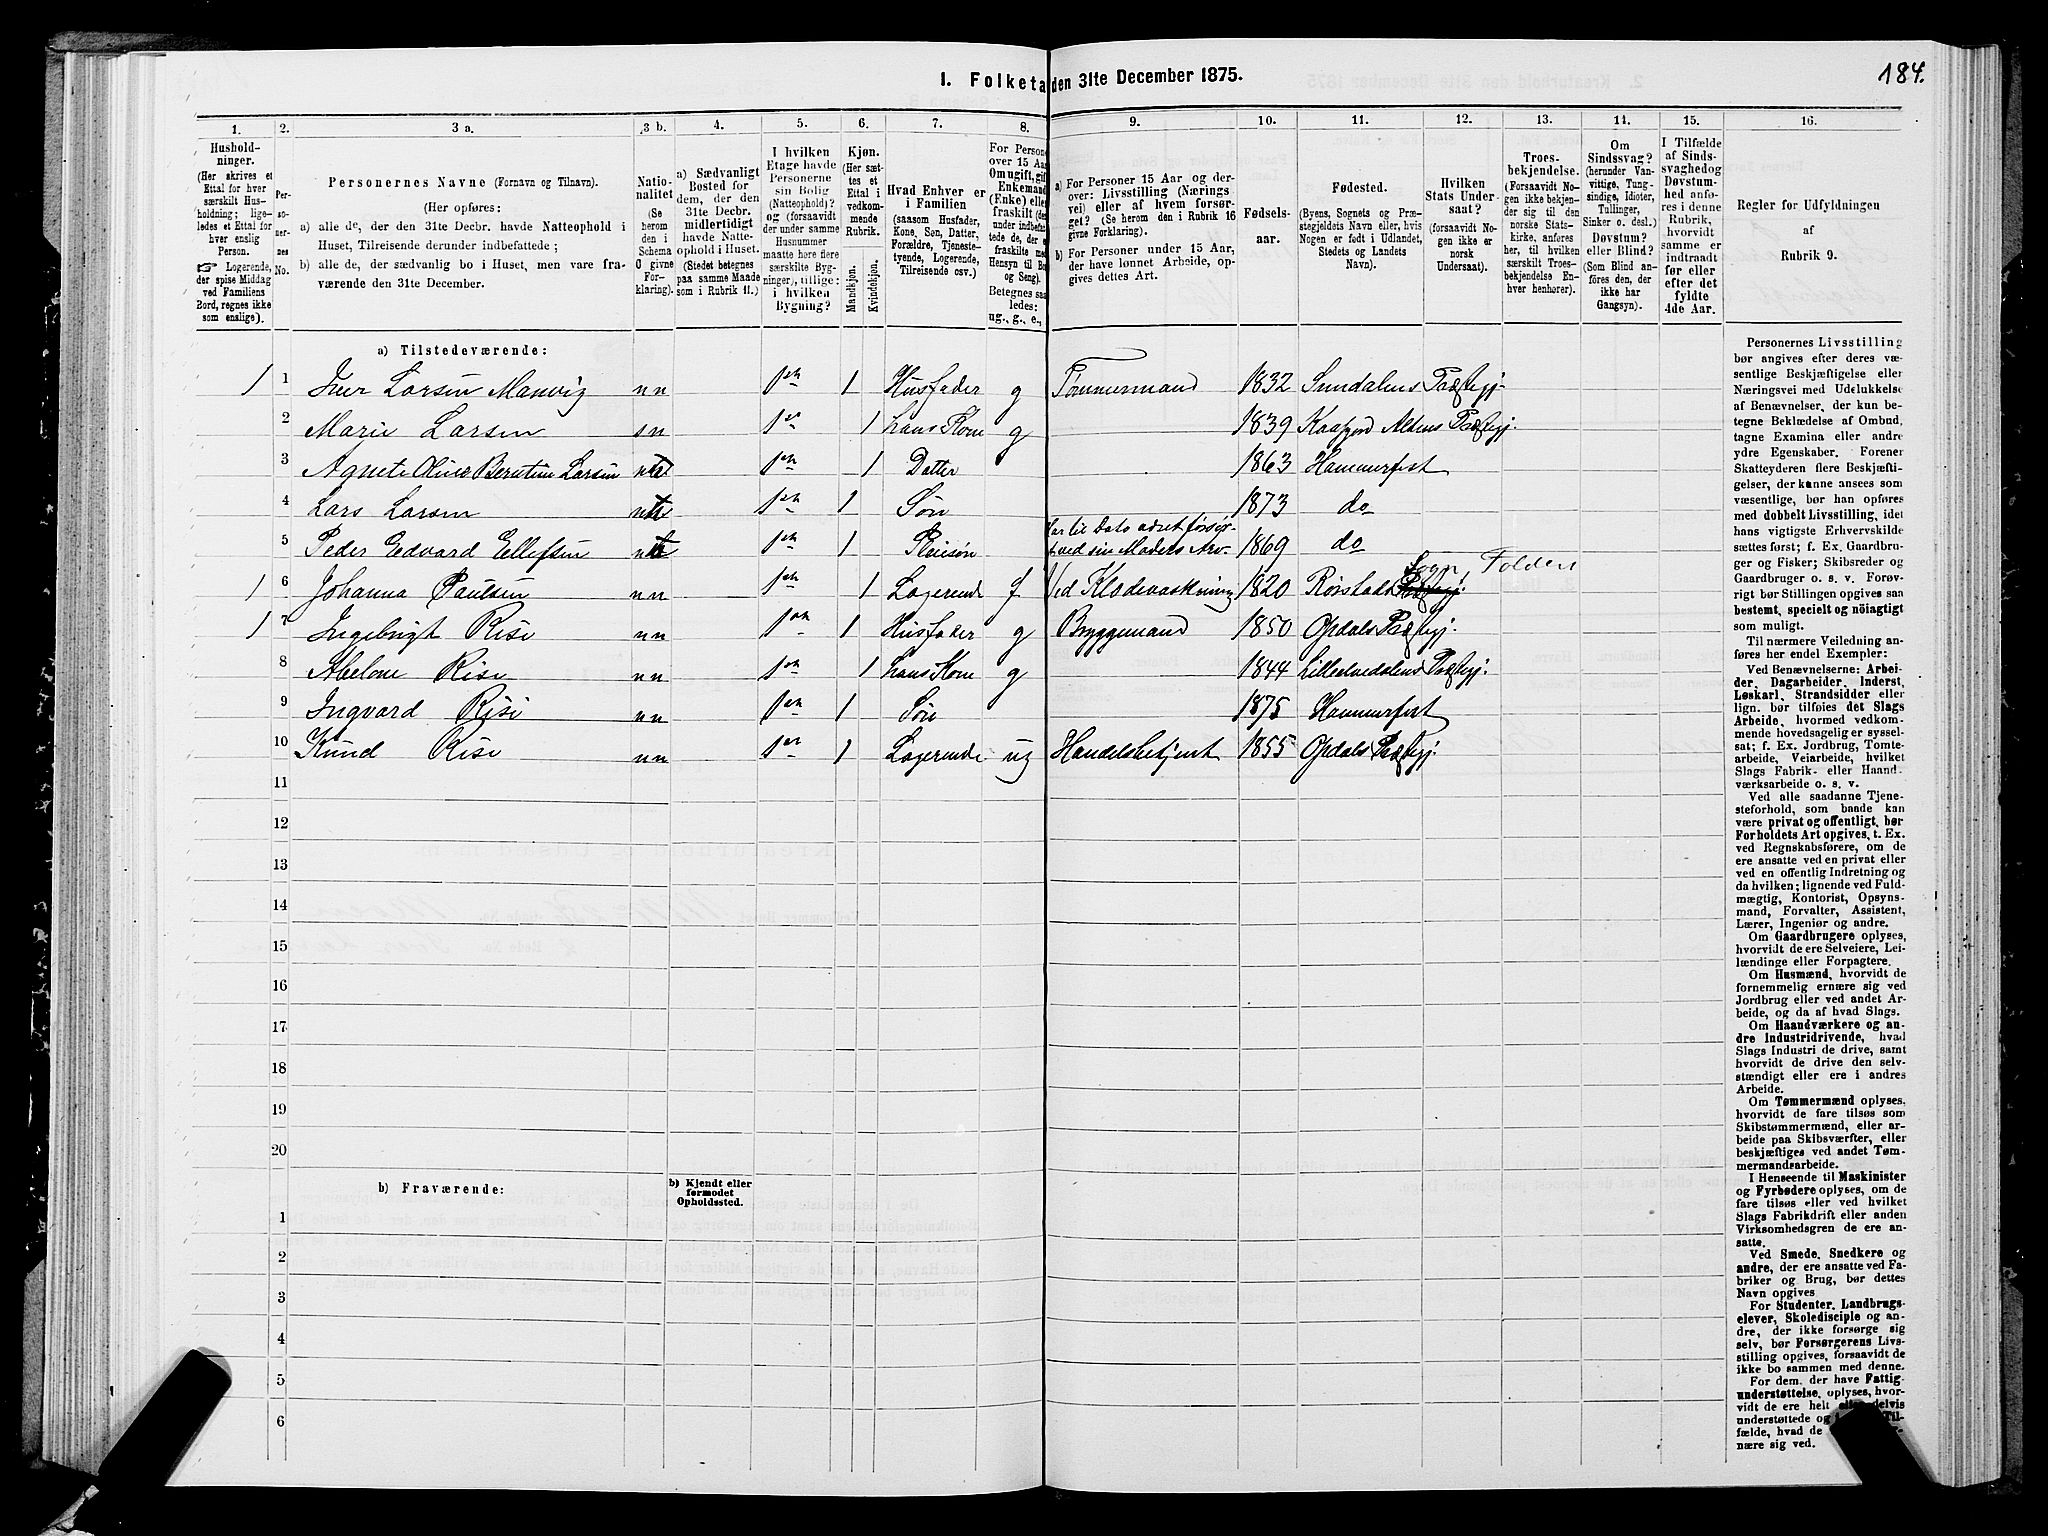 184.
1. Folketa den 31te December 1875.
1. 2. 3 a. 3 b. 4. 5. 6. 7. 8. 9. 10. 11. 12. 13. 14. 15. 16.
Hushold-
ninger.
(Her skrives et
Ettal for hver
særskilt Hus-
holdning; lige-
ledes et Ettal
for hver enslig
Person.
☞ Logerende,
der spise Middag
ved Familiens
Bord, regnes ikke
som enslige).
Per-
so-
ner-
nes
No.
Personernes Navne (Fornavn og Tilnavn).
(Her opføres:
a) alle de, der den 31te Decbr. havde Natteophold i
Huset, Tilreisende derunder indbefattede;
b) alle de, der sædvanlig bo i Huset, men vare fra-
værende den 31te December.
Natio-
nalitet
(Se
herom
den i
Schema
O givne
For-
klaring).
a) Sædvanligt
Bosted for
dem, der den
31te Decbr.
midlertidigt
havde Natte-
ophold i Huset.
(Stedet betegnes
paa samme Maade
som i Rubrik 11.)
I hvilken
Etage havde
Personerne
sin Bolig
(Natteophold)?
og (forsaavidt
der under samme
Husnummer
maatte høre flere
særskilte Byg-
ninger), tillige:
i hvilken
Bygning?
Kjøn.
(Her sæt-
tes et
Ettal i
vedkom-
mende
Rubrik.
Mandkjøn.
Kvindekjøn.
Hvad Enhver er
i Familien
(saasom Husfader,
Kone, Søn, Datter,
Forældre, Tjeneste-
tyende, Logerende,
Tilreisende osv.)
For Persone
over 15 Aar
Om ugift, gift
Enkemand
(Enke) elle
fraskilt (de
under indbefat-
tede de, der e
fraskilte med
Hensyn til Bo
og Seng).
Betegnes saa
ledes:
ug., g., e.,
a) For Personer 15 Aar og der-
over: Livsstilling (Nærings
vei) eller af hvem forsør-
get? (Se herom den i Rubrik 16
givne Forklaring).
b) For Personer under 15 Aar,
der have lønnet Arbeide, op-
gives dettes Art.
Fødsels-
aar.
Fødested.
(Byens, Sognets og Præ-
stegjeldets Navn eller, hvis
Nogen er født i Udlandet,
Stedets og Landets
Navn).
Hvilken
Stats Under-
saat?
(forsaavidt No-
gen ikke er
norsk
Undersaat).
Troes-
bekjendelse.
(Forsaavidt No-
gen ikke bekjen-
der sig til den
norske Stats-
kirke, anføres
her, til hvilken
særskilt Troes-
bekjendelse En-
hver henhører).
Om
Sindssvag?
(herunder Van-
vittige, Tung-
sindige, Idioter,
Tullinger,
Sinker o. desl.)
Døvstum?
eller Blind?
(Som Blind an-
føres den, der
ikke har
Gangsyn).
I Tilfælde
af Sinds-
svaghed og
Døvstum-
hed anfø-
res i denne
Rubrik,
hvorvidt
samme er
indtraadt
før eller
efter det
fyldte
4de Aar.
Regler for Udfyldningen
af
Rubrik 9.
a) Tilstedeværende:
1 1 Iver Larsen Manvig nn 1ste 1 Husfader g Tømmermand 1832 Sundalens Præstegj.
2 Marie Larsen nn 1ste 1 hans Kone g 1839 Kaafjord Altens Præstegj.
3 Agnete Oline Berntine Larsen 1ste 1 Datter 1863 Hammerfest
4 Lars Larsen 1ste 1 Søn 1873 do
5 Peder Edvard Ellefsen 1ste 1 Pleiesøn Har til Dato været forsør- ved sin Moders Arv 1869 do
6 1 Johanna Paulsen nn 1ste 1 Logerende f Ved Klædevaskning 1820 Rørstads Sogn, Folden
7 1 Ingebrigt Rise nn 1ste 1 Husfader g Bryggemand 1850 Opdals Præstegj.
8 Abelone Rise nn 1ste 1 hans Kone g 1844 Lilleelvedalens Præstegj.
9 Ingvard Rise nn 1ste 1 Søn 1875 Hammerfest
10 Knud Rise nn 1ste 1 Logerende ug Handelsbetjent 1855 Opdals Præstegj.
11
12
13
14
15
16
17
18
19
20
b) Fraværende:
b) Kjendt eller
formodet
Opholdssted.
1
2
3
4
5
6
Personernes Livsstilling
bør angives efter deres væ-
sentlige Beskjæftigelse eller
Næringsvei med Udelukkelse
af Benævnelser, der kun be-
tegne Beklædelse af Ombud,
tagne Examina eller andre
ydre Egenskaber. Forener
Skatteyderen flere Beskjæfti-
gelser, der kunne ansees som
væsentlige, bør han opføres
med dobbelt Livsstilling, idet
hans vigtigste Erhvervskilde
sættes først; f. Ex. Gaardbru-
ger og Fisker; Skibsreder og
Gaardbruger o. s. v. Forøv-
rigt bør Stillingen opgives saa
bestemt, specielt og nöiagtigt
som muligt.
Til nærmere Veiledning an-
føres her endel Exempler:
Ved Benævnelserne: Arbei-
der, Dagarbeider, Inderst,
Løskarl, Strandsidder eller
lign. bør tilføies det Slags
Arbeide, hvormed vedkom-
mende hovedsagelig er syssel-
sat; f. Ex. Jordbrug, Tomte-
arbeide, Veiarbeide, hvilket
Slags Fabrik- eller Haand-
værksarbeide o. s. v.
Ved alle saadanne Tjene-
steforhold, som baade kan
være privat og offentligt, bør
Forholdets Art opgives, t. Ex.
ved Regnskabsførere, om de
ere ansatte ved en privat eller
ved en offentlig Indretning og
da hvilken; lignende ved Fuld-
mægtig, Kontorist, Opsyns-
mand, Forvalter, Assistent,
Lærer, Ingeniør og andre.
Om Gaardbrugere oplyses,
hvorvidt de ere Selveiere, Lei-
lændinge eller Forpagtere.
Om Husmænd, hvorvidt de
fornemmelig ernære sig ved
Jordbrug eller ved andet Ar-
beide, og da af hvad Slags.
Om Haandværkere og an-
dre Industridrivende, hvad
Slags Industri de drive, samt
hvorvidt de drive den selv-
stændigt eller ere i andres
Arbeide.
Om Tømmermænd oplyses,
hvorvidt de fare tilsøs som
Skibstømmermænd, eller ar-
beide paa Skibsværfter, eller
beskjæftiges ved andet Tøm-
mermandsarbeide.
I Henseende til Maskinister
og Fyrbødere oplyses, om de
fare tilsøs eller ved hvilket
Slags Fabrikdrift eller anden
Virksomhedsgren de ere an-
satte.
Ved Smede, Snedkere og
andre, der ere ansatte ved Fa-
briker og Brug, bør dettes
Navn opgives
For Studenter, Landbrugs-
elever, Skoledisciple og an-
dre, der ikke forsørge sig
selv, bør Forsørgerens Livs-
stilling opgives, forsaavidt de
ikke bo sammen med denne.
For dem, der have Fattig-
understøttelse, oplyses, hvor-
vidt de ere helt elle delvis
understøttede og Til-
fælde, hvad de
nære sig ved.